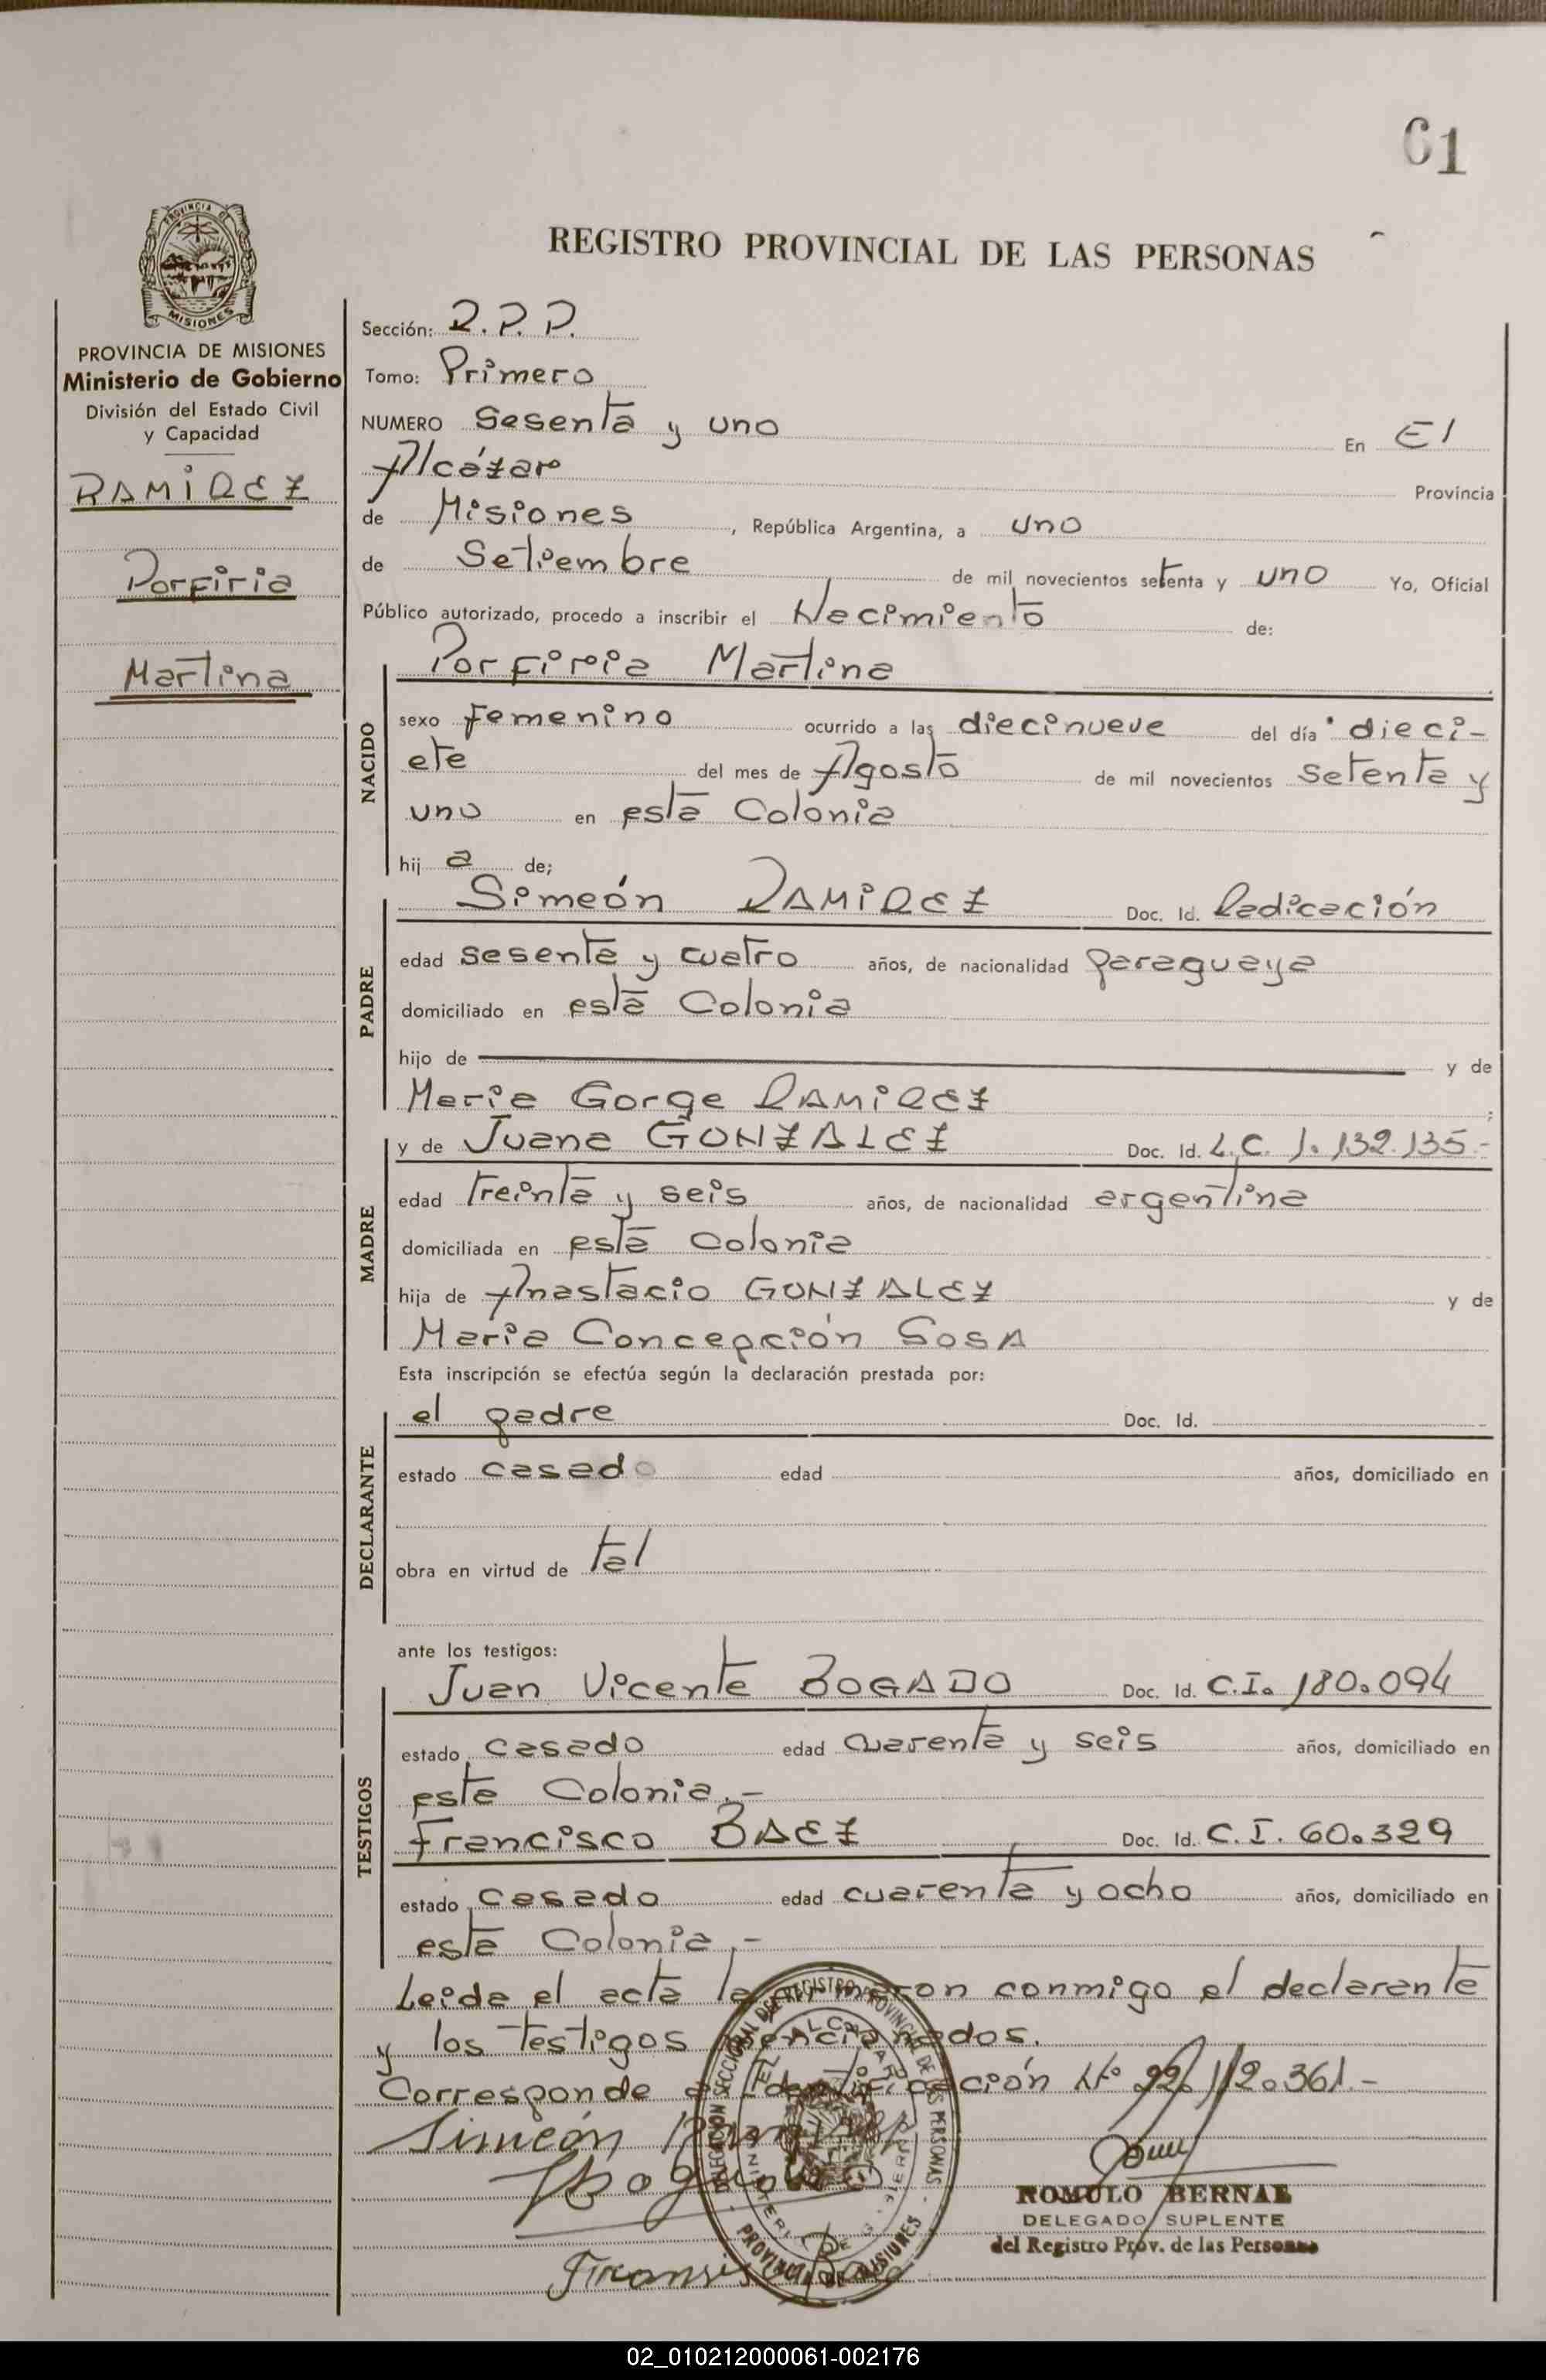 61
REGISTRO PROVINCIAL DE LAS PERSONAS
PROVINCIA DE MISIONES
Ministerio de Gobierno
División del Estado Civil
y Capacidad
RAMIREZ
Porfiria
Martina
Sección: R.P.P.
Tomo: Primero
NUMERO Sesenta y uno En El
Alcázar Provincia
de Misiones, República Argentina, a uno
de Setiembre de mil novecientos setenta y uno Yo, Oficial
Público autorizado, procedo a inscribir el Nacimiento de:
NACIDO
Porfiria Martina
sexo femenino ocurrido a las diecinueve del día dieci-
ete del mes de Agosto de mil novecientos setenta y
uno en esta Colonia
hija de;
PADRE
Simeón RAMIREZ Doc. Id. Radicación
edad sesenta y cuatro años, de nacionalidad paraguaya
domiciliado en esta Colonia
hijo de y de
Maria Gorge RAMIREZ;
MADRE
y de Juana GONZALEZ Doc. Id. L.C. 1.132.135.-
edad treinta y seis años, de nacionalidad argentina
domiciliada en esta Colonia
hija de Anastacio GONZALEZ y de
Maria Concepción SOSA
Esta inscripción se efectúa según la declaración prestada por:
DECLARANTE
el padre Doc. Id.
estado casado edad años, domiciliado en
obra en virtud de tal
ante los testigos:
TESTIGOS
Juan Vicente BOGADO Doc. Id. C.I. 180.094
estado casado edad cuarenta y seis años, domiciliado en
esta Colonia.-
Francisco BAEZ Doc. Id. C.I. 60.329
estado casado edad cuarenta y ocho años, domiciliado en
esta Colonia.-
Leida el acta la firmaron conmigo el declarante
y los testigos mencionados.
Corresponde a Identificación Nº 22.112.361.-
Simeón Ramirez
DELEGACION SECCIONAL DEL REGISTRO PROVINCIAL DE LAS PERSONAS
EL ALCAZAR
PROVINCIA DE MISIONES
ROMULO BERNAL
DELEGADO SUPLENTE
del Registro Prov. de las Personas
02_010212000061-002176